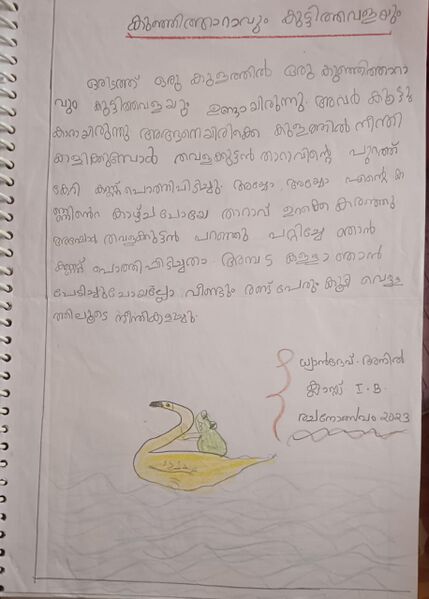 കുഞ്ഞിത്താറാവും കുട്ടിത്തവളയും
ഒരിടത്ത് ഒരു കുളത്തിൽ ഒരു കുഞ്ഞിത്താറാ
വും കുട്ടിത്തവളയും ഉണ്ടായിരുന്നു. അവർ കൂട്ടു
കാരായിരുന്നു അങ്ങനെയിരിക്കെ കുളത്തിൽ നീന്തി
കളിക്കുമ്പോൾ തവളക്കുട്ടൻ താറാവിന്റെ പുറത്ത്
കേറി കണ്ണ് പൊത്തിപിടിച്ചു. അയ്യോ, അയ്യോ എന്റെ ക
ണ്ണിന്റെ കാഴ്ച പോയേ താറാവ് ഉറക്കെ കരഞ്ഞു
അപ്പോൾ തവളക്കുട്ടൻ പറഞ്ഞു പറ്റിച്ചേ ഞാൻ
കണ്ണ് പൊത്തിപ്പിടിച്ചതാ. അമ്പട കള്ളാ ഞാൻ
പേടിച്ചുപോയല്ലോ വീണ്ടും രണ്ട് പേരും കൂടി വെള്ള
ത്തിലൂടെ നീന്തികളിച്ചു.
ധ്യാൻദേവ്. അനിൽ
ക്ലാസ്സ് I. B.
രചനോത്സവം 2023